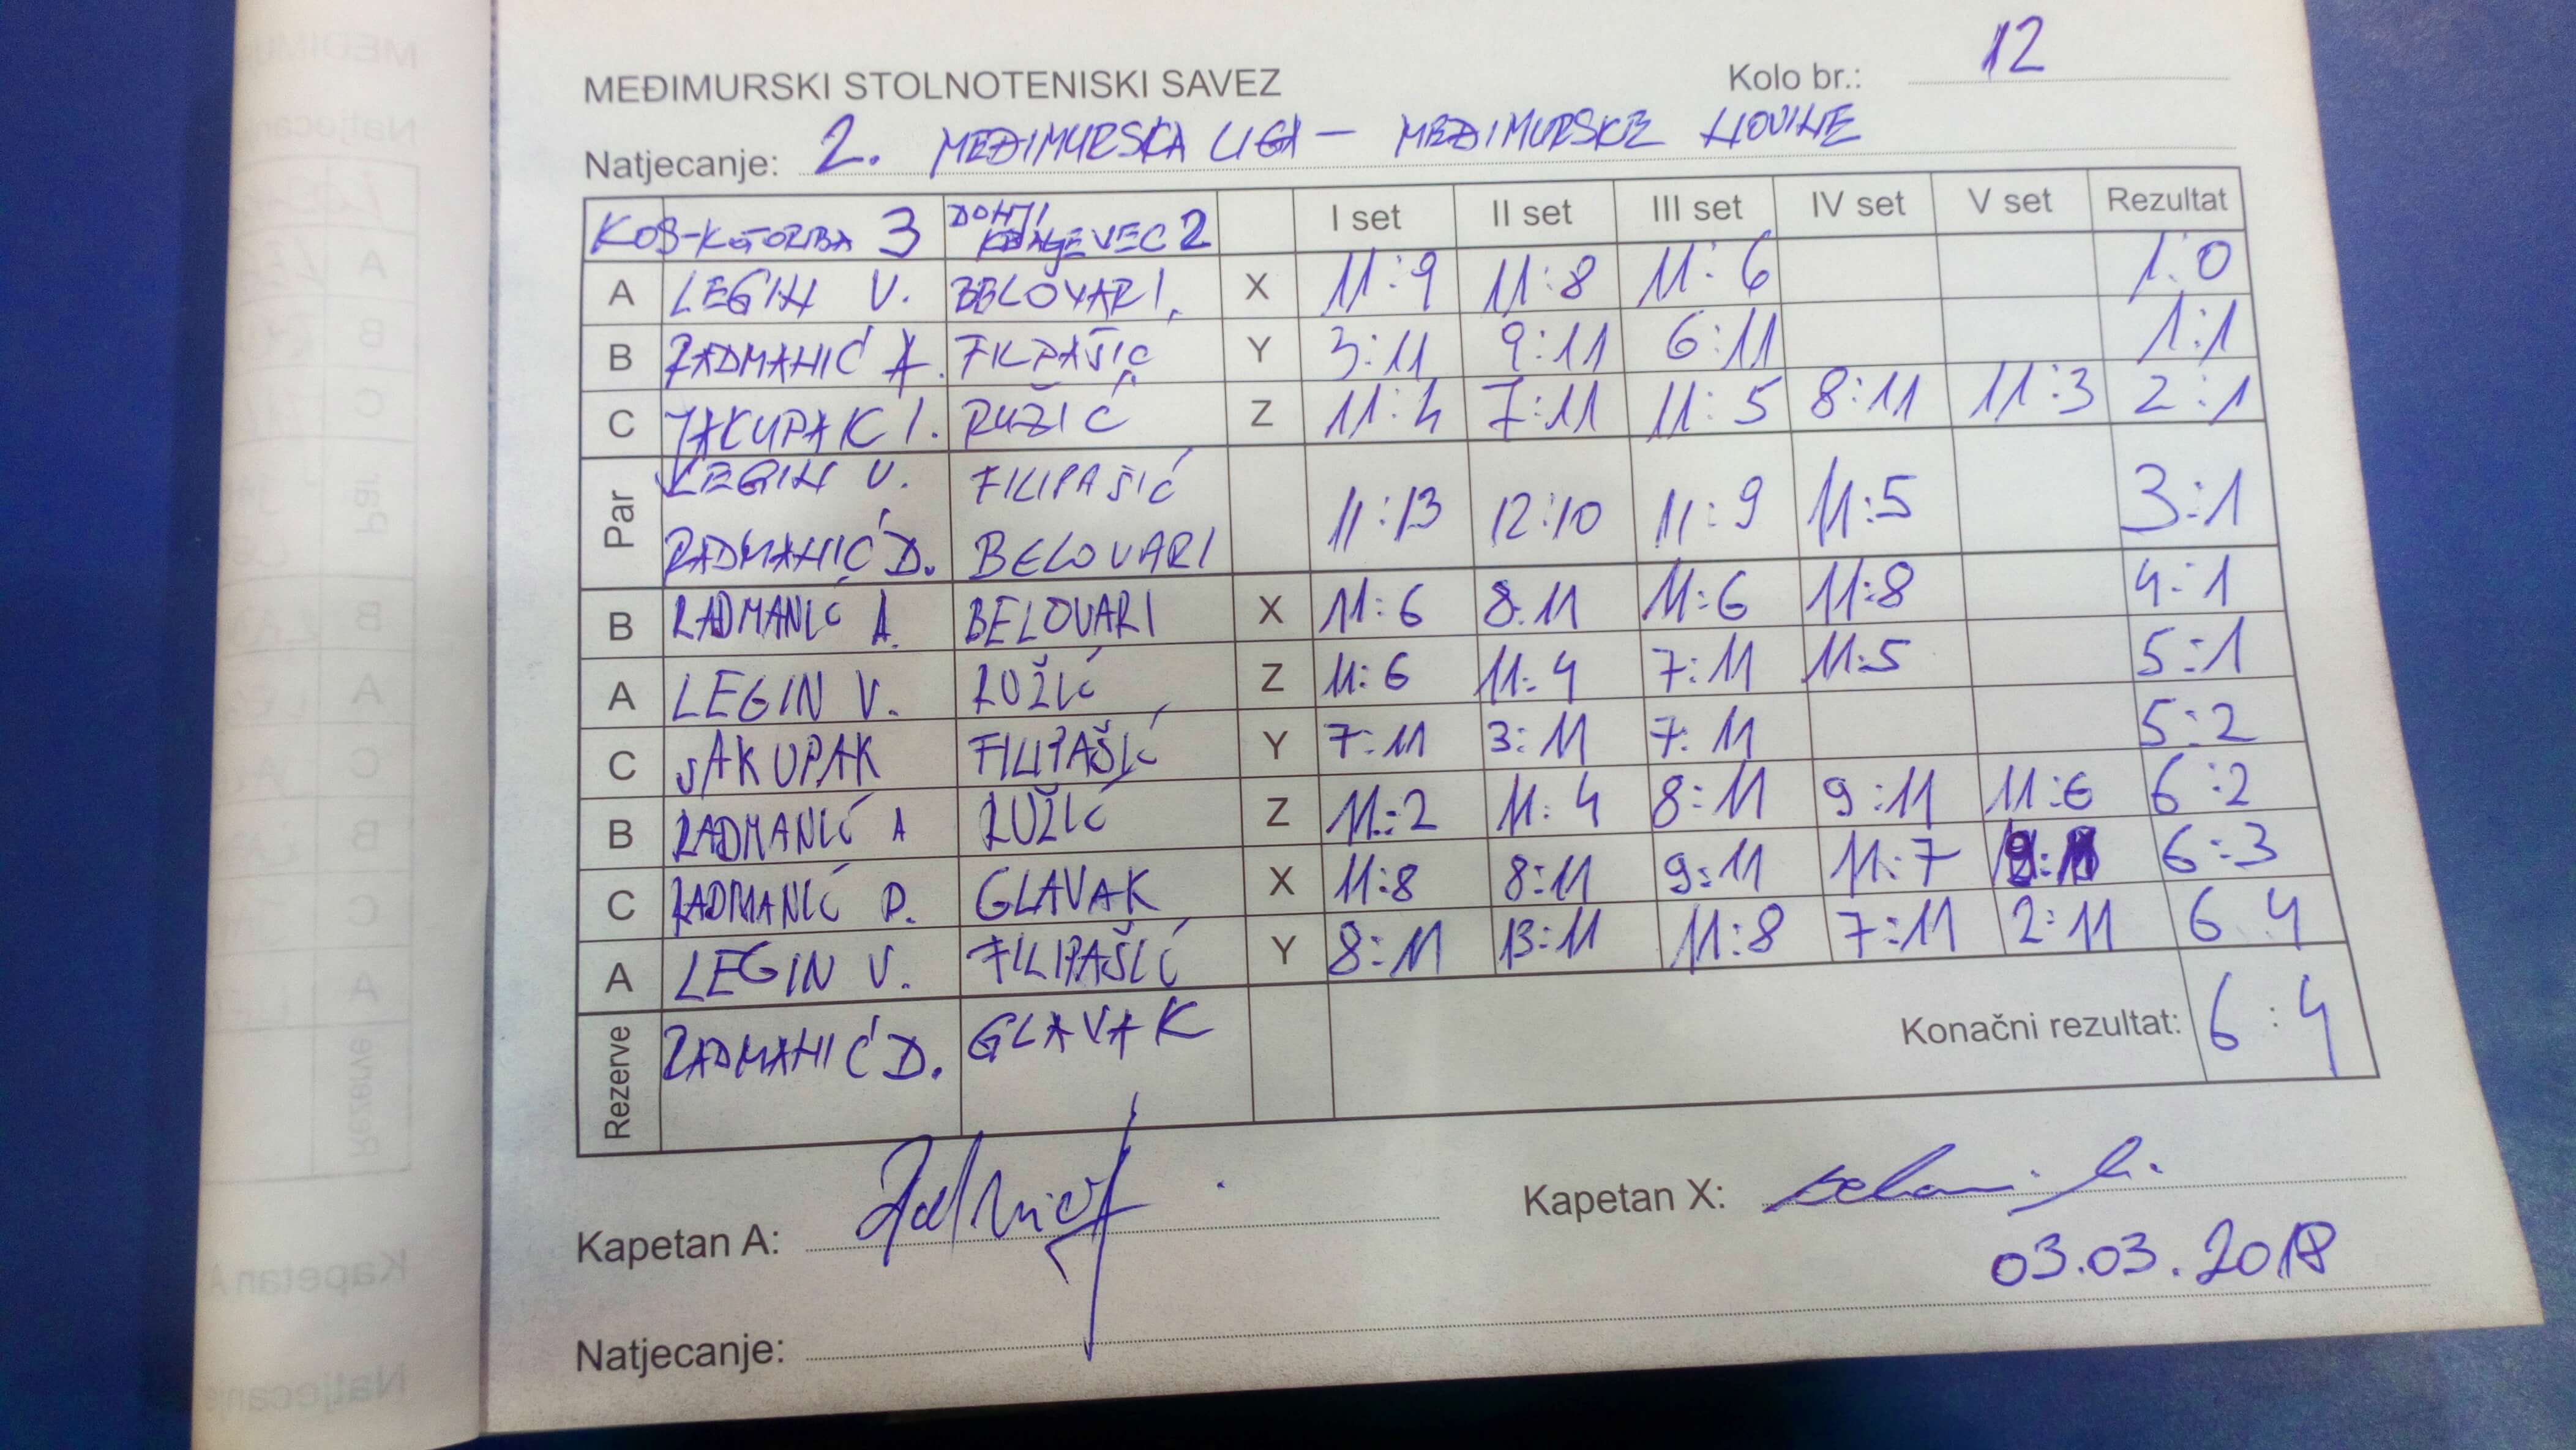 MEĐIMURSKI STOLNOTENISKI SAVEZ Kolo br.: 12
Natjecanje: 2. MEĐIMURSKA LIGA – MEĐIMURSKE NOVINE
KOS-KOTORIBA 3 DONJI KRALJEVEC 2 I set II set III set IV set V set Rezultat
A LEGIN V. BELOVARI, X 11:9 11:8 11:6 1:0
B RADMANIĆ A. FILPAŠIĆ Y 3:11 9:11 6:11 1:1
C JAKUPAK I. RUŽIĆ Z 11:4 7:11 11:5 8:11 11:3 2:1
Par LEGIN V. FILIPAŠIĆ 11:13 12:10 11:9 11:5 3:1
RADMANIĆ D. BELOVARI
B RADMANIĆ A. BELOVARI X 11:6 8:11 11:6 11:8 4:1
A LEGIN V. RUŽIĆ Z 11:6 11:4 7:11 11:5 5:1
C JAKUPAK FILIPAŠIĆ Y 7:11 3:11 7:11 5:2
B RADMANIĆ A RUŽIĆ Z 11:2 11:4 8:11 9:11 11:6 6:2
C RADMANIĆ D. GLAVAK X 11:8 8:11 9:11 11:7 6:3
A LEGIN V. FILIPAŠIĆ Y 8:11 13:11 11:8 7:11 2:11 6:4
Rezerve RADMANIĆ D. GLAVAK Konačni rezultat: 6:4
Kapetan A: Kapetan X:
03.03.2018
Natjecanje: